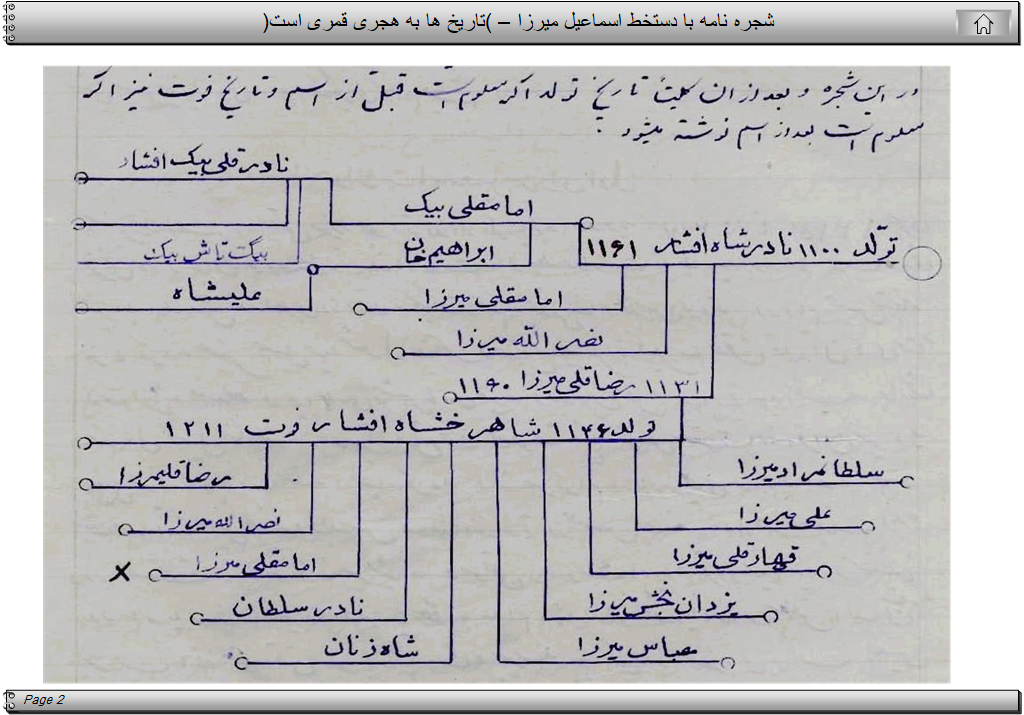 شجره نامه با دستخط اسماعیل میرزا – )تاریخ ها به هجری قمری است(
در این شجره و بعد از آن کلیهٔ تاریخ تولد اگر معلوم است قبل از اسم و تاریخ فوت نیز اگر
معلوم است بعد از اسم نوشته میشود :
نادر قلی بیک افشار
امامقلی بیک
تولّد ۱۱۰۰ نادر شاه افشار ۱۱۶۱
ابراهیم خان
بیگ تاش بیک
علیشاه
امامقلی میرزا
نصر الله میرزا
۱۱۳۱ رضا قلی میرزا ۱۱۶۰
تولد ۱۱۴۶ شاهرخشاه افشار فوت ۱۲۱۱
سلطانمراد میرزا
رضا قلیمیرزا
علی میرزا
نصر الله میرزا
قهار قلی میرزا
امامقلی میرزا
X
یزدان بخش میرزا
نادر سلطان
عباس میرزا
شاه زنان
Page 2